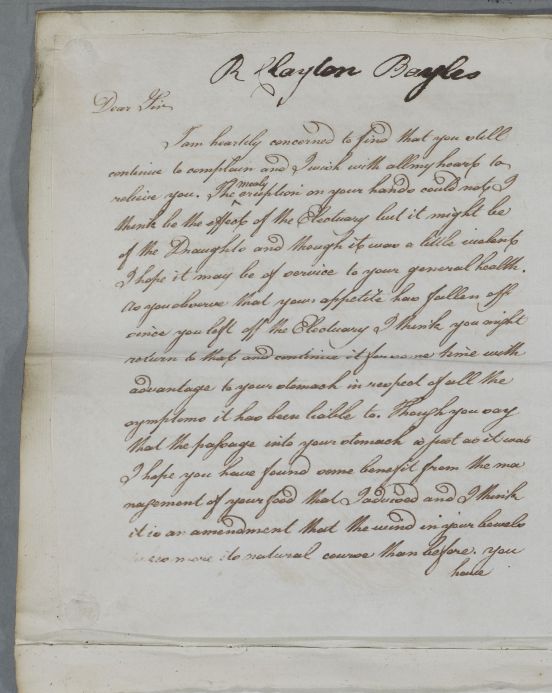 R Clayton Bayles
Dear Sir
I am heartily concerned to find that you still
continue to complain and I wish with all my heart to
relieve you. The mealy eruption on your hands could not I
think be the effect of the Electuary but it might be
of the Draughts and though it was a little violent
I hope it may be of service to your general health.
As you observe that your appetite has fallen off
since you left off the Electuary I think you might
return to that and continue it for some time with
advantage to your stomach in respect of all the
symptoms it has been liable to. Though you say
that the passage into your stomach is just as it was
I hope you have found some benefit from the ma
nagement of your food that I advised and I think
it is an amendment that the wind in your bowels
more its natural course than before. you
have